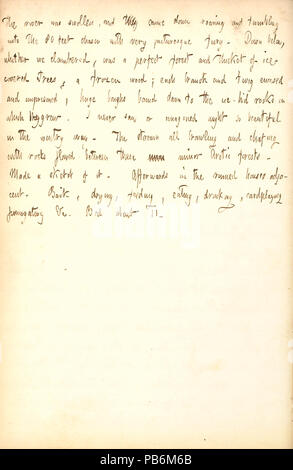 The river was swollen, and came down roaring and tumbling
into the 80 feet chasm with very picturesque fury. Down below,
whither we clambered, was a perfect forest and thicket of ice-
covered trees, a frozen wood; each branch and twig encased
and imprisoned; huge boughs bound down to the ice-hid rocks in
which they grew. I never saw or imagined sight so beautiful
in the wintry way. The stream all brawling and chafing
with rocks placid between these minor Arctic forests.
Made a sketch of it. Afterwards in the ruined houses adja-
cent. Back, drying, feeding, eating, drinking, cardplaying
fumigating &c. Bed about 11.
alamy
Image ID: PB6M6B
www.alamy.com